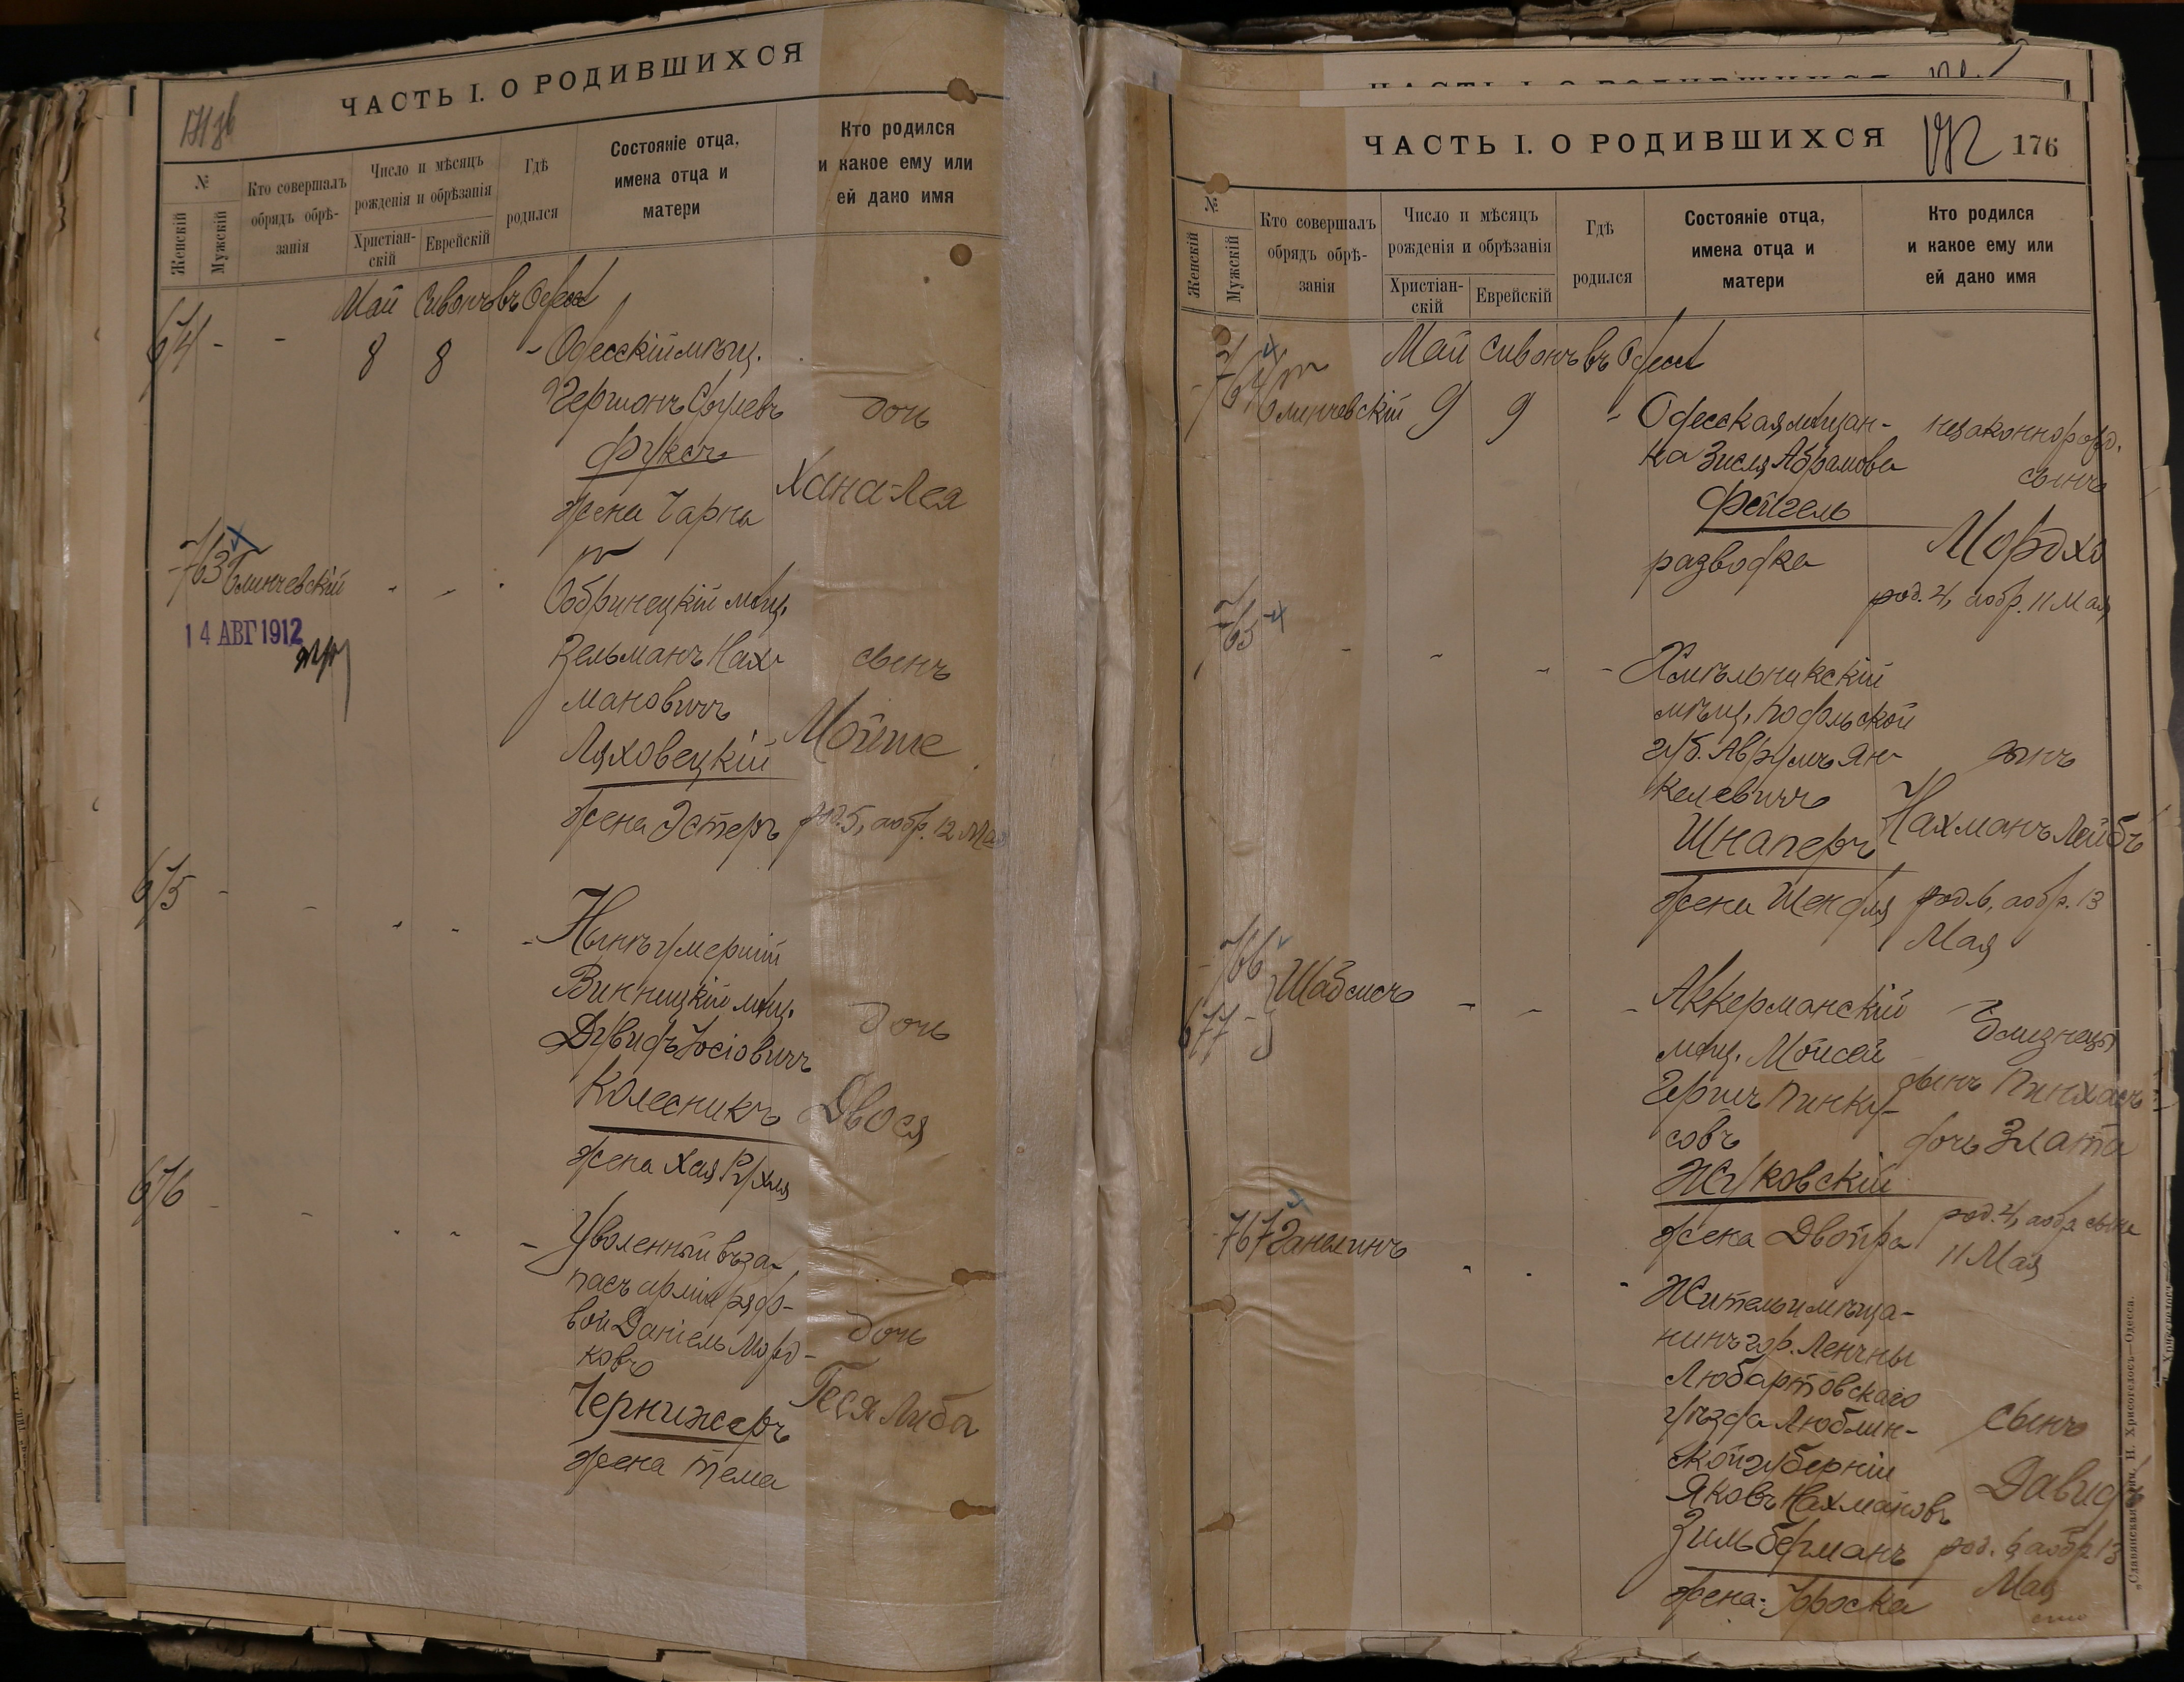 ЧАСТЬ I. О РОДИВШИХСЯ
№
Женскій
Мужскій
Кто совершалъ
обрядъ обрѣ-
занія
Число и мѣсяцъ
рожденія и обрѣзанія
Христіан-
скій
Еврейскій
Гдѣ
родился
Состояніе отца,
имена отца и
матери
Кто родился
и какое ему или
ей дано имя
Май Сивонъ въ Одессѣ
674 - - 8 8 - Одесскій мѣщ.
Гершонъ
Фуксъ
жена Чарна
дочь
Хана-Лея
763 Блинчевскій
14 АВГ 1912
Бобринецкій мѣщ.
Зельманъ Нах-
мановичъ
Ляховецкій
жена Эстеръ
сынъ
Мойше
род. 5, а обр. 12 Мая
675 - Нынѣ умершій
Винницкій мѣщ.
Дувидъ Іосіовичъ
Колесникъ
жена Хая Рухля
дочь
Двося
676 - Уволенный въ за-
пасъ арміи рядо-
вой Даніель Морд-
ковъ
Чернижеръ
жена Тема
дочь
Геся Либа
ЧАСТЬ I. О РОДИВШИХСЯ
172
176
№
Женскій
Мужскій
Кто совершалъ
обрядъ обрѣ-
занія
Число и мѣсяцъ
рожденія и обрѣзанія
Христіан-
скій
Еврейскій
Гдѣ
родился
Состояніе отца,
имена отца и
матери
Кто родился
и какое ему или
ей дано имя
Май Сивонъ въ Одессѣ
764 Блинчевскій 9 9 - Одесская мѣщан-
ка Зисля Абрамова
Фейгель
разводка
незаконнорожд.
сынъ
Мордхо
род. 4, а обр. 11 Мая
765 - Хмѣльникскій
мѣщ. Подольской
губ. Аврумъ Ян-
келевичъ
Шнаперъ
жена Шендля
сынъ
Нахманъ Лейбъ
род. 6, а обр. 13
Мая
766
677 -
Шабсисъ
Аккерманскій
мѣщ. Мойсей
Гершъ Пинку-
совъ
Жуковскій
жена Двойра
близнецы
сынъ Пинхасъ
дочь Злата
род. 4, а обр. сына
11 Мая
767 Ганелинъ
Житель и мѣща-
нинъ гор. Ленчны
Любартовскаго
уѣзда Люблин-
ской губерніи
Яковъ Нахмановъ
Зильберманъ
жена
сынъ
Давидъ
род. 6, а обр. 13
Мая
„Славянская“ тип. Н. Хрисогелосъ—Одесса.